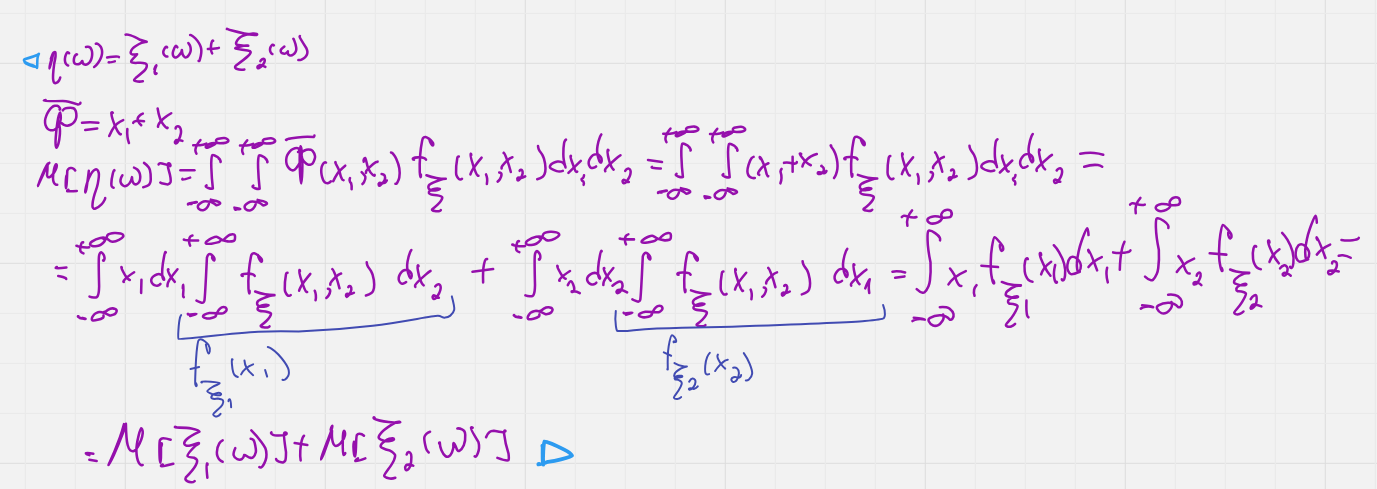 ◁ η(ω) = ξ₁(ω) + ξ₂(ω)
φ = x₁ + x₂
M[η(ω)] = ∫_{-∞}^{+∞} ∫_{-∞}^{+∞} φ(x₁,x₂) f_ξ(x₁,x₂) dx₁dx₂ = ∫_{-∞}^{+∞} ∫_{-∞}^{+∞} (x₁+x₂) f_ξ(x₁,x₂) dx₁dx₂ =
= ∫_{-∞}^{+∞} x₁ dx₁ ∫_{-∞}^{+∞} f_ξ(x₁,x₂) dx₂ + ∫_{-∞}^{+∞} x₂ dx₂ ∫_{-∞}^{+∞} f_ξ(x₁,x₂) dx₁ = ∫_{-∞}^{+∞} x₁ f_{ξ₁}(x₁) dx₁ + ∫_{-∞}^{+∞} x₂ f_{ξ₂}(x₂) dx₂ =
f_{ξ₁}(x₁) f_{ξ₂}(x₂)
= M[ξ₁(ω)] + M[ξ₂(ω)] ▷